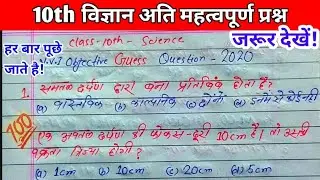 10th विज्ञान अति महत्वपूर्ण प्रश्न
हर बार पूछे
जाते है!
जरूर देखें!
class-10th - Science
V.V.I Objective Guess Question - 2020
1. समतल दर्पण द्वारा बना प्रतिबिंब होता है?
(a) वास्तविक (b) काल्पनिक (c) दोनों (d) इनमें से कोई नहीं
100
एक अवतल दर्पण की फोकस-दूरी 10cm है। तो उसकी
वक्रता त्रिज्या होगी?
(a) 1cm (b) 10cm (c) 20cm (d) 5cm